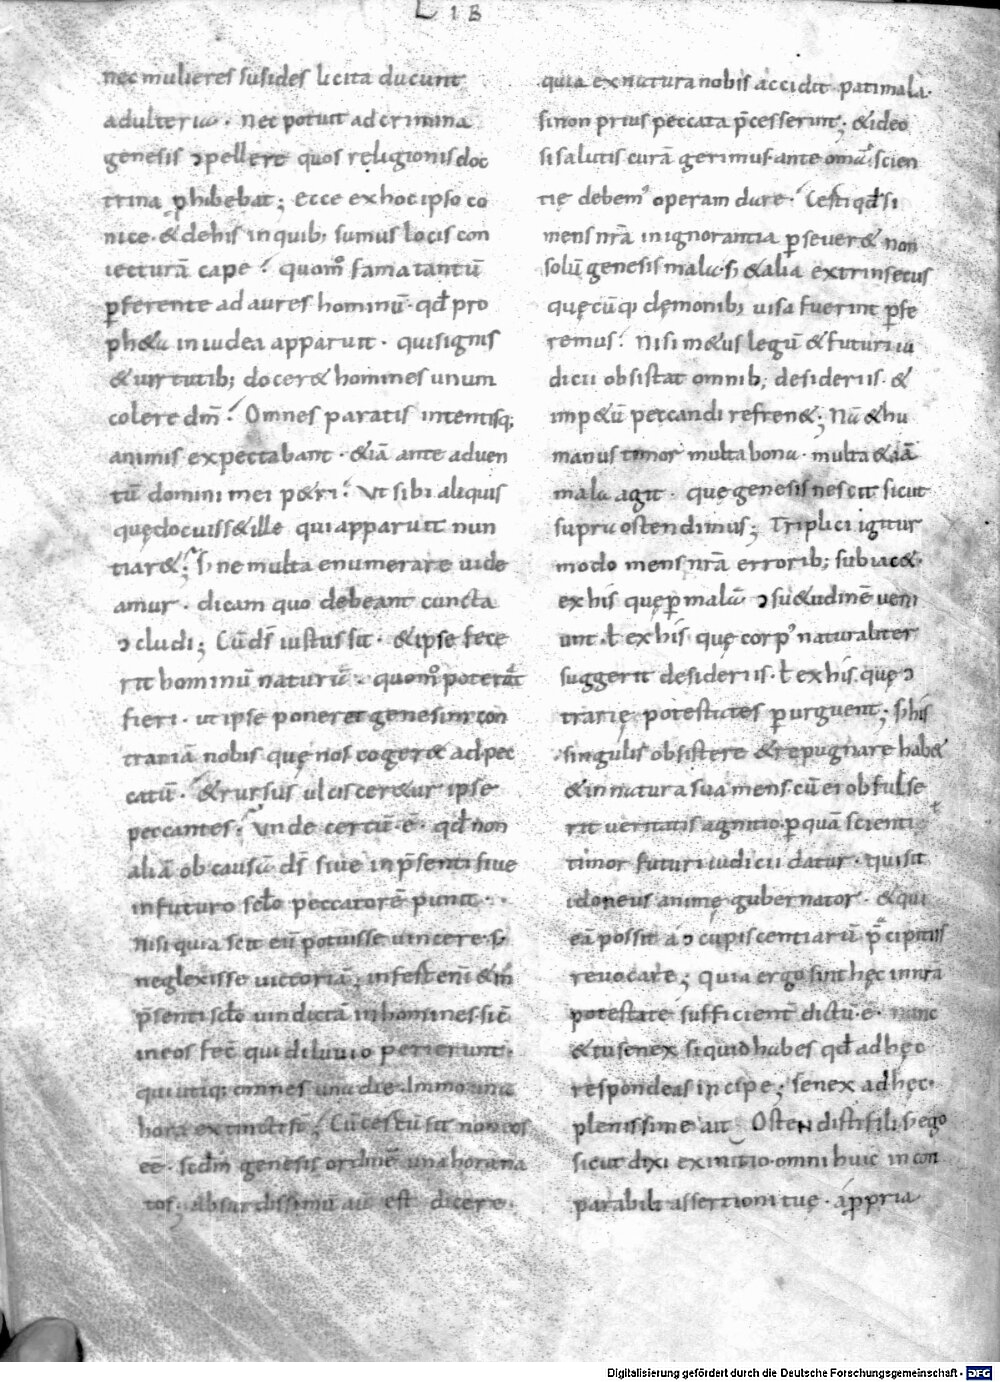 LIB
nec mulieres susides licita ducunt
adulteriu͞. Nec potuit ad crimina
genesis ɔpellere quos religionis doc
trina ꝓhibebat; Ecce ex hoc ipso co
nice. & de his in quib; sumus locis con
iecturā cape. quom̊ fama tantū
ꝑferente ad aures hominū. qđ pro
ph&a in iudea apparuit. qui signis
& uirtutib; docer& homines unum
colere dm̄. Omnes paratis intentisq;
animis expectabant. &iā ante aduen
tū domini mei p&ri. Ut sibi aliquis
quę docuiss& ille qui apparuit nun
tiar&; S; ne multa enumerare uide
amur. dicam quo debeant cuncta
ɔcludi; Cū ds̄ iustus sit. & ipse fece
rit hominū naturā. quom̊ poterat
fieri. ut ipse poneret genesim con
trariā nobis quę nos coger& ad pec
catū. & rursus ulcisceretur ipse
peccantes. Unde certū. ē. qđ non
aliā ob causā ds̄ siue in p̄senti siue
in futuro sclo peccatorē punit.
Nisi quia scit eū potuisse uincere. s;
neglexisse uictoriā; infest eni &m̄
p̄senti sclo uindictā in homines. sic̄
in eos fec̄ qui diluuio perierunt.
qui utiq; omnes una die. Immo una
hora extincti sṫ; Cū certū sit non eos
eē. scdm̄ genesis ordinē una hora na
tos; absurdissimū aū est dicere.
quia ex natura nobis accidit pati mala.
si non prius peccata p̄cesserint; & ideo
si salutis curā gerimus. ante om̄a scien
tię debem' operam dare. Certi qđ si
mens nrā in ignorantia ꝑseuer& non
solū genesis mala. s; & alia extrinsecus
quęcūq; dęmonib; uisa fuerint ꝑfe
remus. Nisi m&us legū & futuri iu
dicii obsistat omnib; desideriis. &
imp&ū peccandi refren&; Nā & hu
manus timor multa bona. multa &iā
mala agit. que genesis nescit sicut
supra ostendimus; Triplici igitur
modo mens nrā errorib; subiac&.
ex his quę ꝑ malā ɔsu&udinē ueni
unt. ł ex his quę corp' naturaliter
suggerit desideriis. ł ex his. quę ɔ
trarię potestates ꝑurguent; s; his
singulis obsistere & repugnare hab&
& in natura sua mens. cū ei obfulse
rit ueritatis agnitio. ꝑ quā scienti
timor futuri iudicii datur. qui sit
idoneus animę gubernator. & qui
eā possit a ɔcupiscentiarū p̄cipitiis
reuocare; Quia ergo sint hęc in nrā
potestate sufficient dictū. ē. nunc
& tu senex si quid habes qđ ad hęc
respondeas incipe; senex ad hęc.
plenissime ait. Ostendisti fili. s; ego
sicut dixi ex initio. omni huic incon
parabili assertioni tuę. a ꝓpria
Digitalisierung gefördert durch die Deutsche Forschungsgemeinschaft - DFG